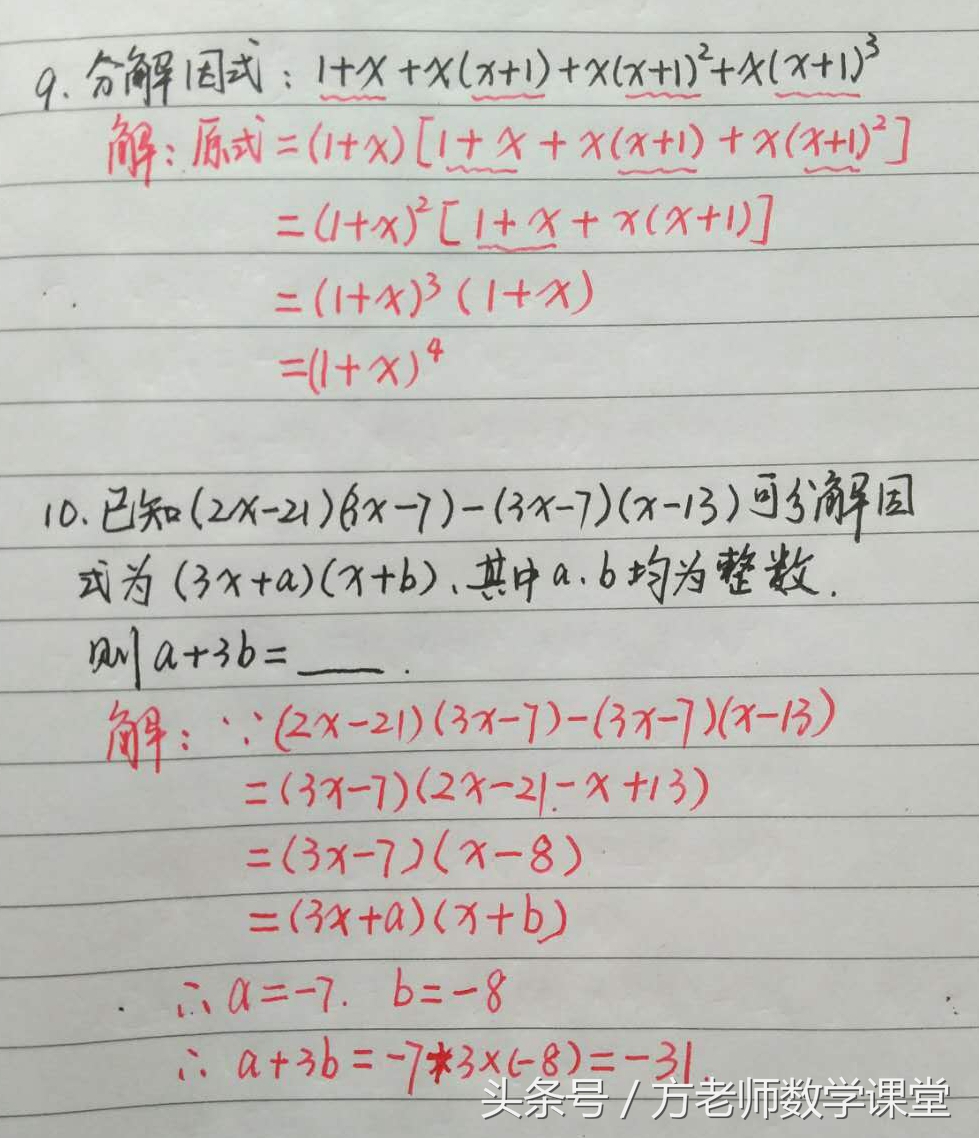 9. 分解因式：1+x+x(x+1)+x(x+1)²+x(x+1)³
解：原式=(1+x)[1+x+x(x+1)+x(x+1)²]
=(1+x)²[1+x+x(x+1)]
=(1+x)³(1+x)
=(1+x)⁴
10. 已知(2x-21)(3x-7)-(3x-7)(x-13)可分解因
式为(3x+a)(x+b)、其中a、b均为整数.
则a+3b=___.
解：∵(2x-21)(3x-7)-(3x-7)(x-13)
=(3x-7)(2x-21-x+13)
=(3x-7)(x-8)
=(3x+a)(x+b)
∴a=-7. b=-8
∴a+3b=-7+3×(-8)=-31.
头条号 / 方老师数学课堂